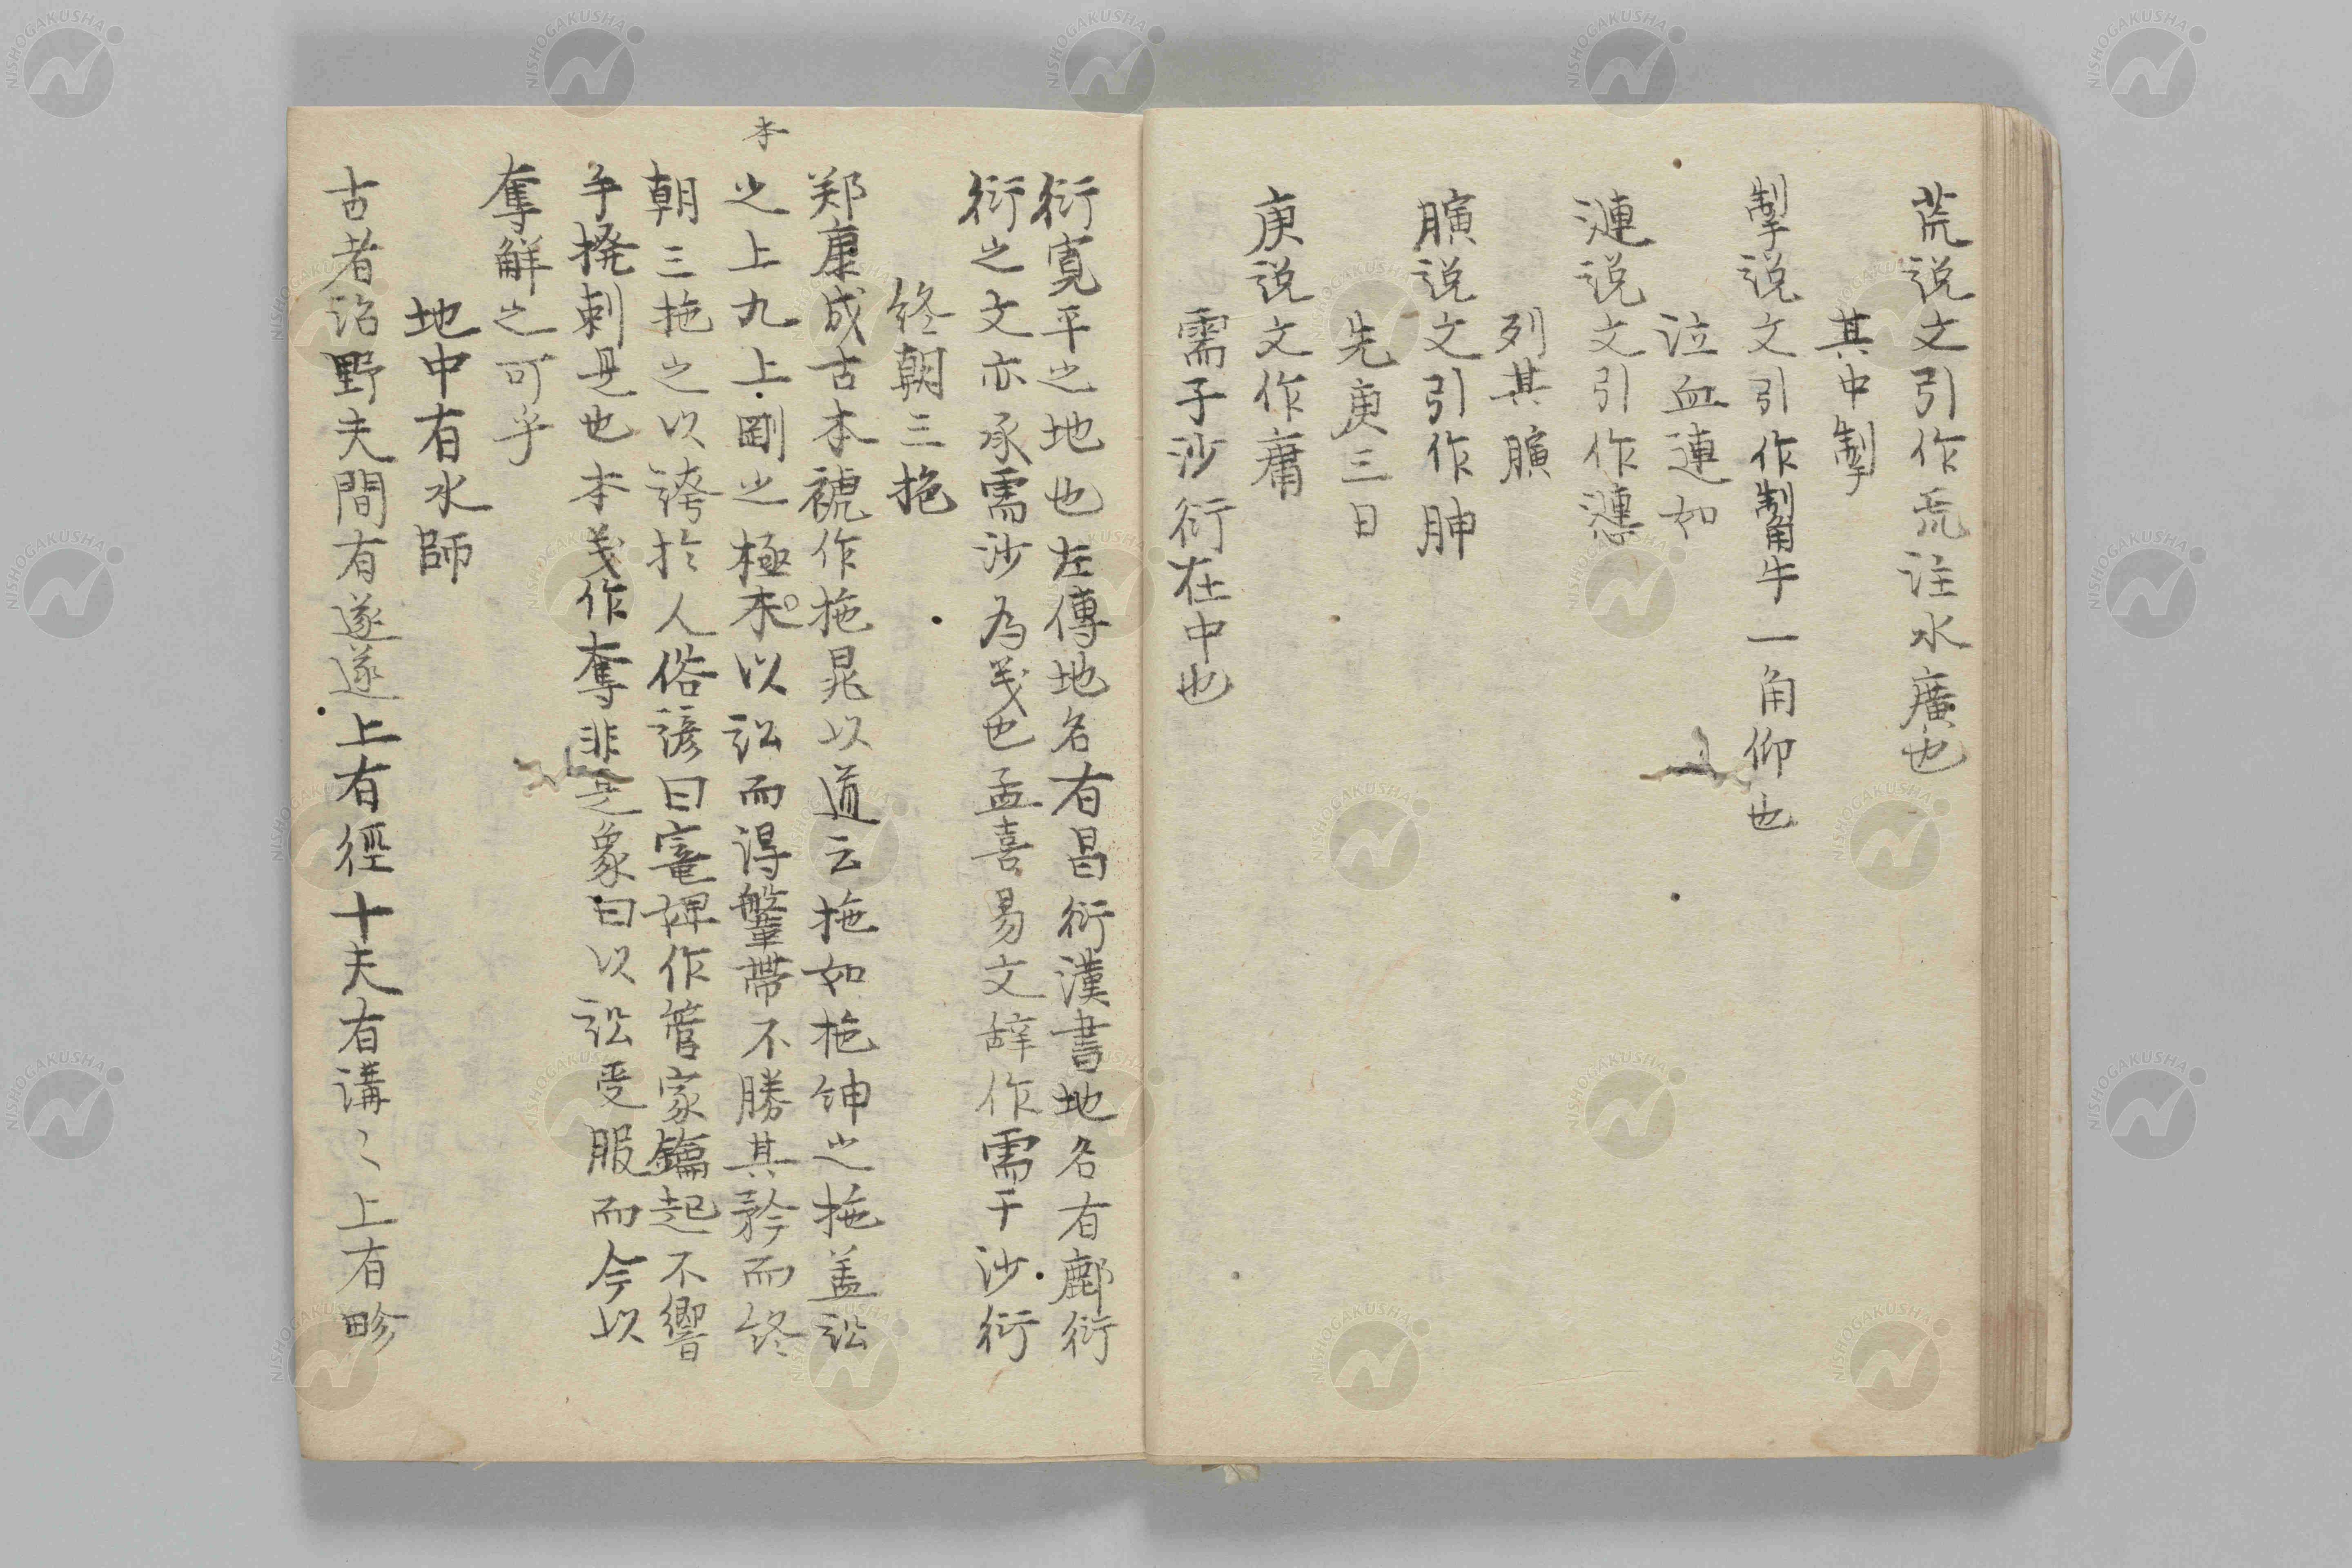 荒説文引作巟註水廣也
其中掣
掣説文引作觢牛一角仰也
泣血連如
漣説文引作㦁
列其䐵
䐵説文引作胂
先庚三日
庚説文作庸
需于沙衍在中也
衍寛平之地也左傳地名有昌衍漢書地名有鄜衍
衍之文亦承需沙為義也孟喜易文辞作需于沙衍
終朝三拖
郑康成古本褫作拖晁以道云拖如拖紳之拖盖訟
之上九上剛之極本以訟而得鞶帶不勝其矜而終
本
朝三拖之以誇於人俗諺曰竃婢作管家鑰起不響
手撓剌是也本義作奪非是象曰以訟受服而今以
奪解之可乎
地中有水師
古者治野夫間有遂遂上有徑十夫有溝〻上有畛
NISHOGAKUSHA